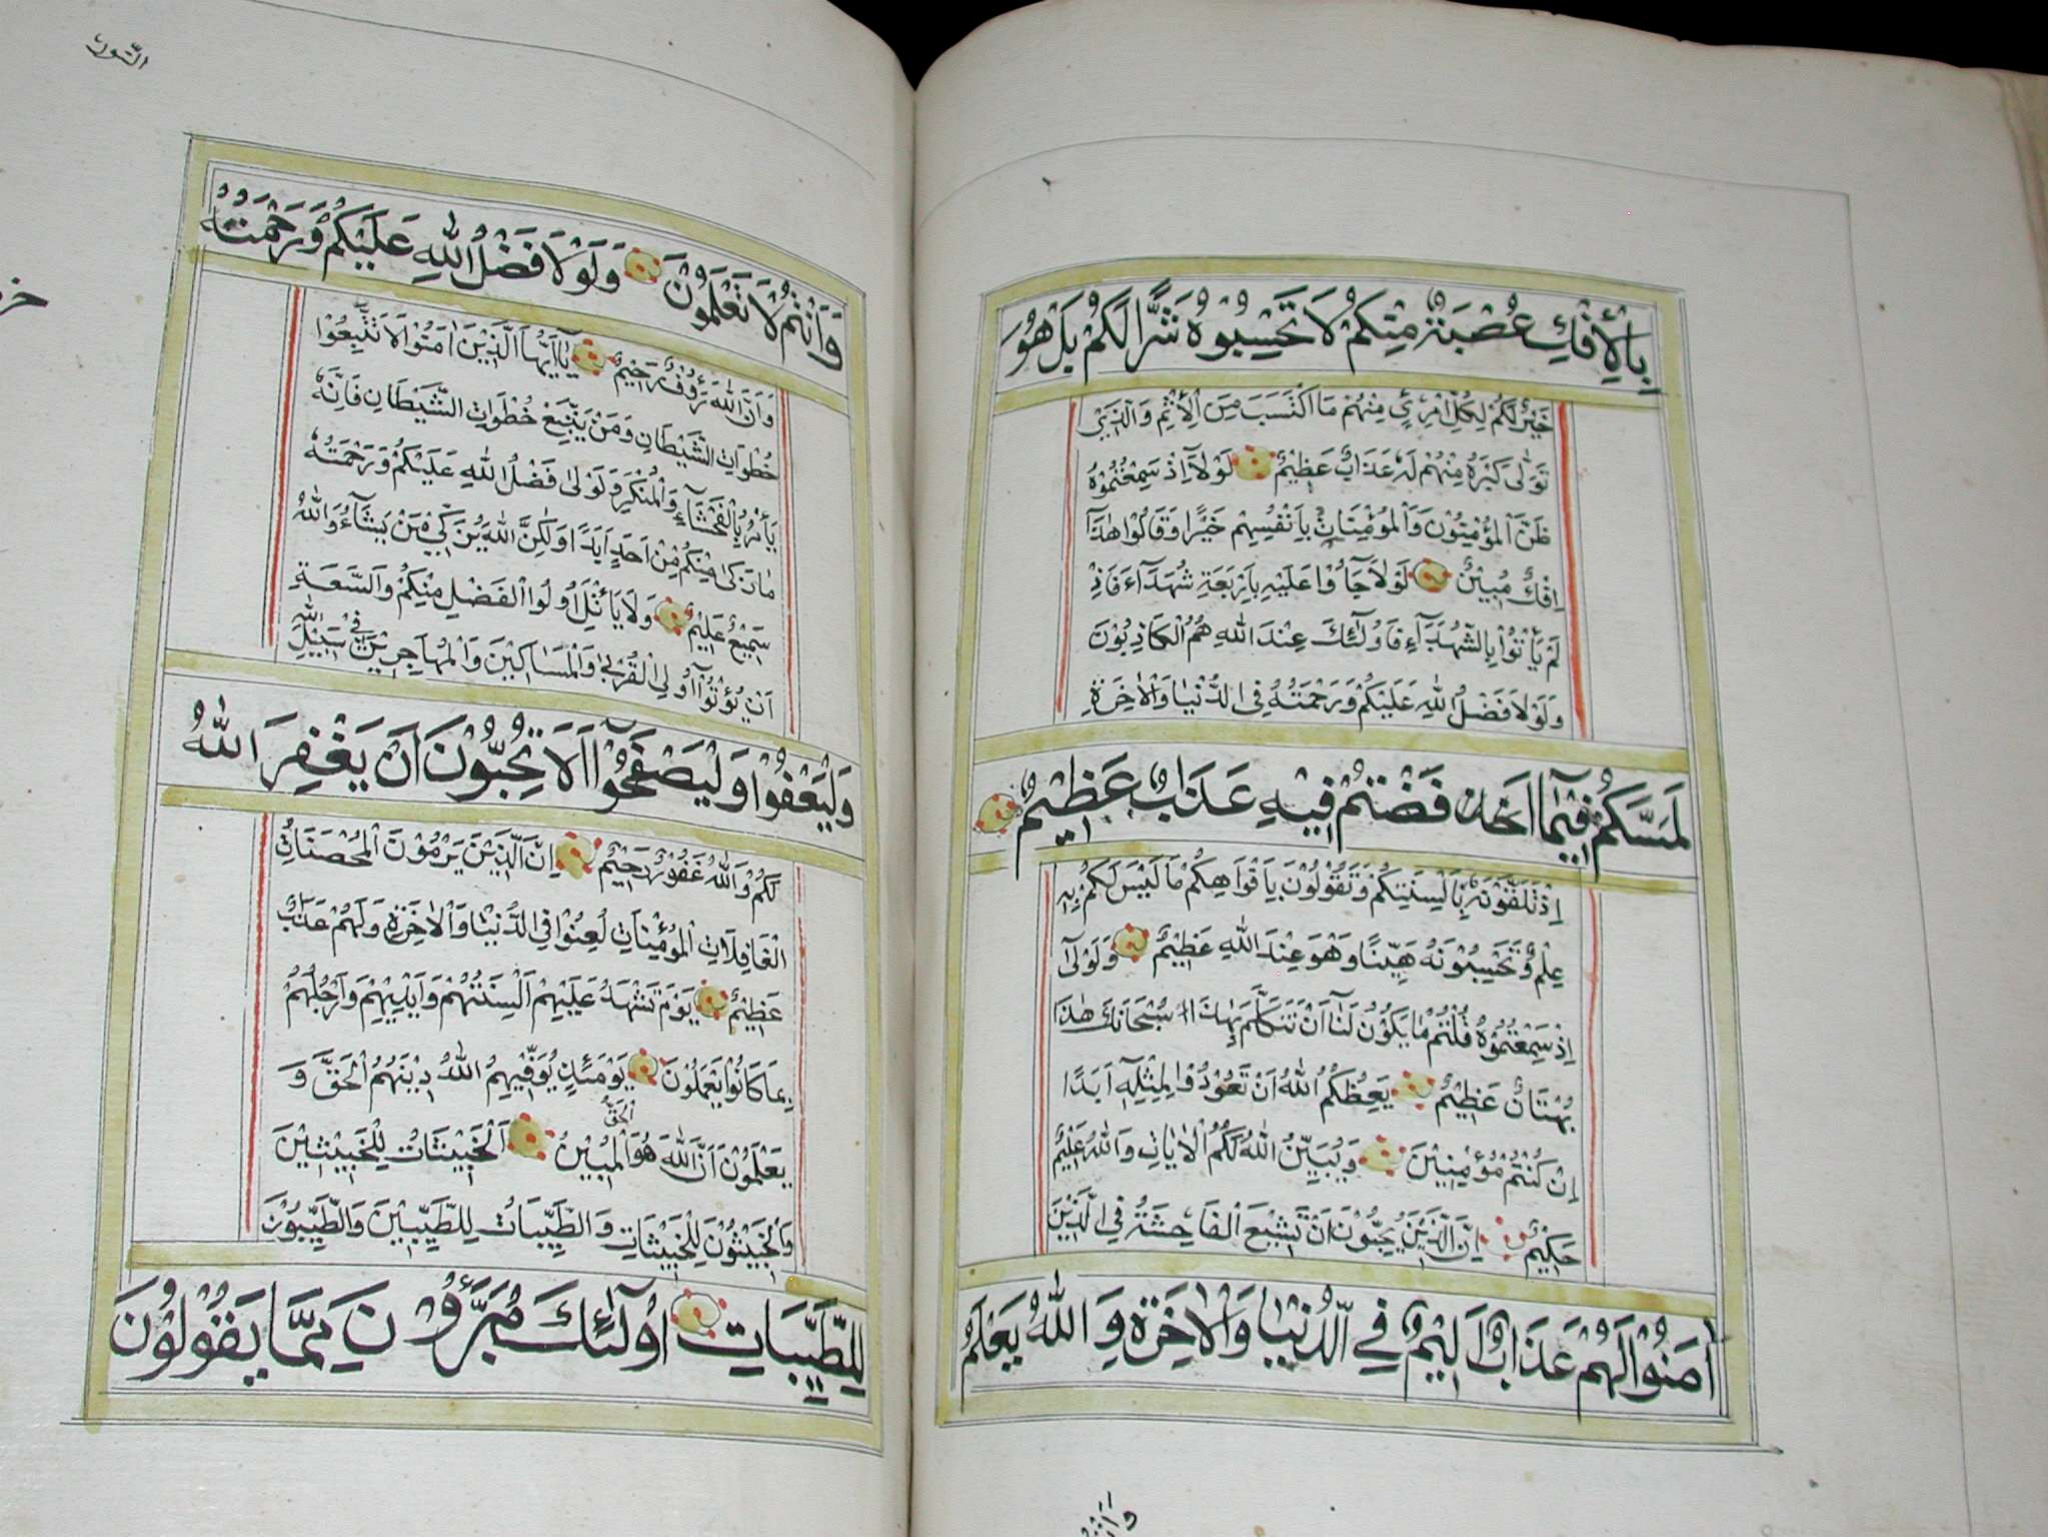 بِالْاِفْكِ عُصْبَةٌ مِنْكُمْ لَا تَحْسِبُوهُ شَرًّا لَكُمْ بَلْ هُوَ
خَيْرٌ لَكُمْ لِكُلِّ امْرِئٍ مِنْهُمْ مَا اكْتَسَبَ مِنَ الْاِثْمِ وَالَّذِي
تَوَلّٰى كِبْرَهُ مِنْهُمْ لَهُ عَذَابٌ عَظِيمٌ لَوْلَٓا اِذْ سَمِعْتُمُوهُ
ظَنَّ الْمُؤْمِنُونَ وَالْمُؤْمِنَاتُ بِاَنْفُسِهِمْ خَيْرًا وَقَالُوا هٰذَٓا
اِفْكٌ مُبِينٌ لَوْلَا جَاؤُا عَلَيْهِ بِاَرْبَعَةِ شُهَدَٓاءَ فَاِذْ
لَمْ يَأْتُوا بِالشُّهَدَٓاءِ فَاُولٰٓئِكَ عِنْدَ اللّٰهِ هُمُ الْكَاذِبُونَ
وَلَوْلَا فَضْلُ اللّٰهِ عَلَيْكُمْ وَرَحْمَتُهُ فِي الدُّنْيَا وَالْاٰخِرَةِ
لَمَسَّكُمْ فِيمَٓا اَفَضْتُمْ فِيهِ عَذَابٌ عَظِيمٌ
اِذْ تَلَقَّوْنَهُ بِاَلْسِنَتِكُمْ وَتَقُولُونَ بِاَفْوَاهِكُمْ مَا لَيْسَ لَكُمْ بِهِ
عِلْمٌ وَتَحْسِبُونَهُ هَيِّنًا وَهُوَ عِنْدَ اللّٰهِ عَظِيمٌ وَلَوْلَٓا
اِذْ سَمِعْتُمُوهُ قُلْتُمْ مَا يَكُونُ لَنَٓا اَنْ نَتَكَلَّمَ بِهٰذَا سُبْحَانَكَ هٰذَا
بُهْتَانٌ عَظِيمٌ يَعِظُكُمُ اللّٰهُ اَنْ تَعُودُوا لِمِثْلِهِٓ اَبَدًا
اِنْ كُنْتُمْ مُؤْمِنِينَ وَيُبَيِّنُ اللّٰهُ لَكُمُ الْاٰيَاتِ وَاللّٰهُ عَلِيمٌ
حَكِيمٌ اِنَّ الَّذِينَ يُحِبُّونَ اَنْ تَشِيعَ الْفَاحِشَةُ فِي الَّذِينَ
اٰمَنُوا لَهُمْ عَذَابٌ اَلِيمٌ فِي الدُّنْيَا وَالْاٰخِرَةِ وَاللّٰهُ يَعْلَمُ
وَاَنْتُمْ لَا تَعْلَمُونَ وَلَوْلَا فَضْلُ اللّٰهِ عَلَيْكُمْ وَرَحْمَتُهُ
وَاَنَّ اللّٰهَ رَؤُفٌ رَحِيمٌ يَٓا اَيُّهَا الَّذِينَ اٰمَنُوا لَا تَتَّبِعُوا
خُطُوَاتِ الشَّيْطَانِ وَمَنْ يَتَّبِعْ خُطُوَاتِ الشَّيْطَانِ فَاِنَّهُ
يَأْمُرُ بِالْفَحْشَٓاءِ وَالْمُنْكَرِ وَلَوْلَا فَضْلُ اللّٰهِ عَلَيْكُمْ وَرَحْمَتُهُ
مَا زَكٰى مِنْكُمْ مِنْ اَحَدٍ اَبَدًا وَلٰكِنَّ اللّٰهَ يُزَكِّي مَنْ يَشَٓاءُ وَاللّٰهُ
سَمِيعٌ عَلِيمٌ وَلَا يَأْتَلِ اُولُوا الْفَضْلِ مِنْكُمْ وَالسَّعَةِ
اَنْ يُؤْتُٓوا اُولِي الْقُرْبٰى وَالْمَسَاكِينَ وَالْمُهَاجِرِينَ فِي سَبِيلِ اللّٰهِ
وَلْيَعْفُوا وَلْيَصْفَحُوا اَلَا تُحِبُّونَ اَنْ يَغْفِرَ اللّٰهُ
لَكُمْ وَاللّٰهُ غَفُورٌ رَحِيمٌ اِنَّ الَّذِينَ يَرْمُونَ الْمُحْصَنَاتِ
الْغَافِلَاتِ الْمُؤْمِنَاتِ لُعِنُوا فِي الدُّنْيَا وَالْاٰخِرَةِ وَلَهُمْ عَذَابٌ
عَظِيمٌ يَوْمَ تَشْهَدُ عَلَيْهِمْ اَلْسِنَتُهُمْ وَاَيْدِيهِمْ وَاَرْجُلُهُمْ
بِمَا كَانُوا يَعْمَلُونَ يَوْمَئِذٍ يُوَفِّيهِمُ اللّٰهُ دِينَهُمُ الْحَقَّ وَ
يَعْلَمُونَ اَنَّ اللّٰهَ هُوَ الْحَقُّ الْمُبِينُ اَلْخَبِيثَاتُ لِلْخَبِيثِينَ
وَالْخَبِيثُونَ لِلْخَبِيثَاتِ وَالطَّيِّبَاتُ لِلطَّيِّبِينَ وَالطَّيِّبُونَ
لِلطَّيِّبَاتِ اُولٰٓئِكَ مُبَرَّؤُنَ مِمَّا يَقُولُونَ